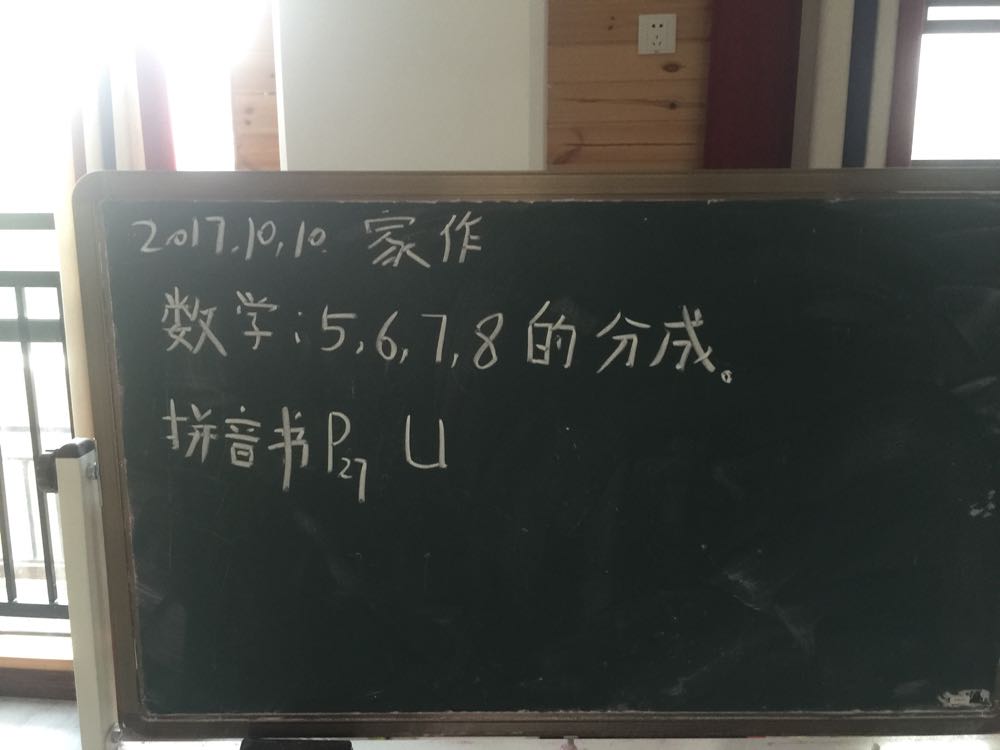 2017.10.10. 家作
数学:5,6,7,8的分成。
拼音书P27 U